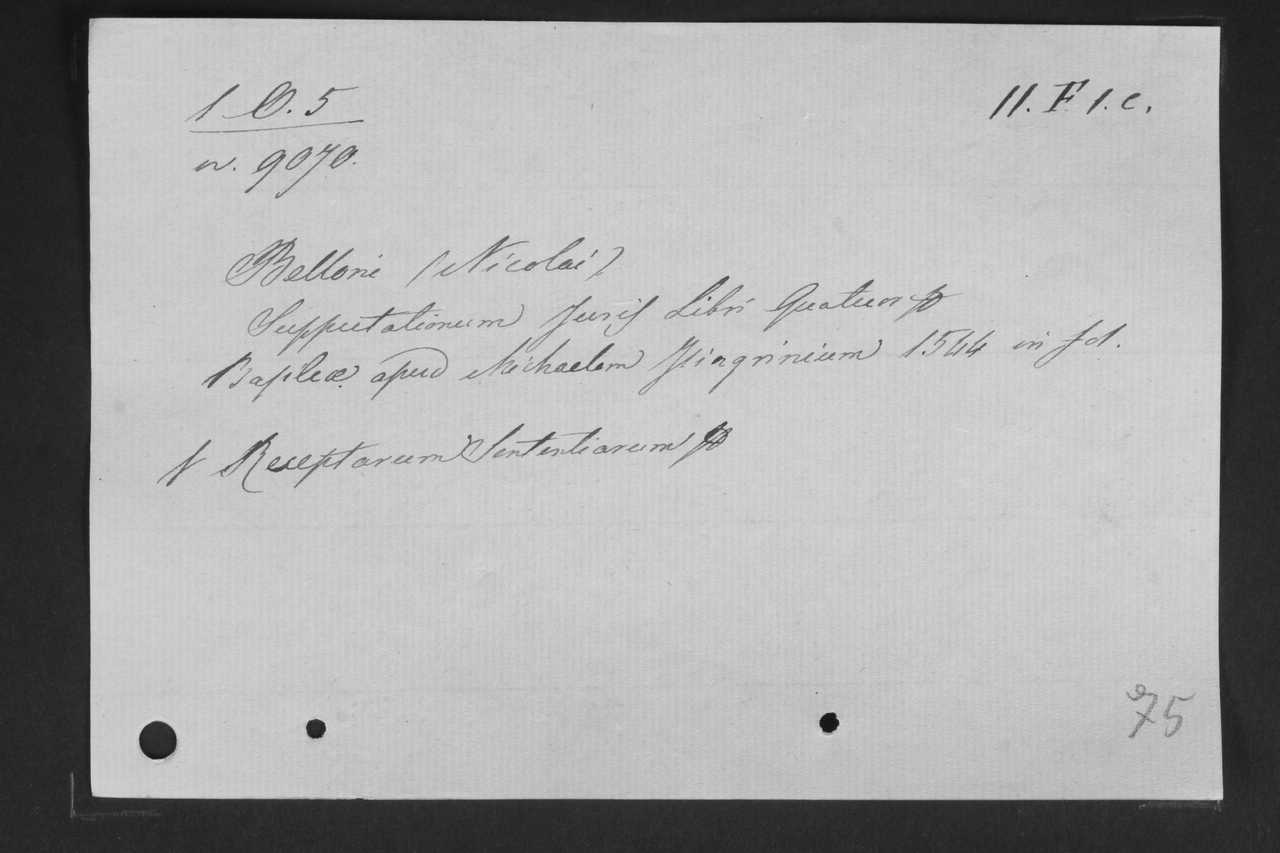 1 O. 5
n. 9070.
11. F. 1. c.
Belloni (Nicolai)
Supputationum Juris Libri Quatuor
Basileæ apud Michaelem Isingrinium 1544 in fol.
Receptarum Sententiarum
75